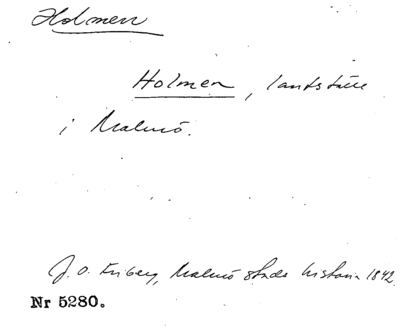 Holmen
Holmen, landställe
i Malmö.
J. O. Friberg, Malmö stads historia 1842.
Nr 5280.